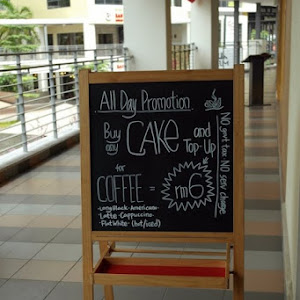 All Day Promotion
Buy any CAKE and Top-Up
for COFFEE = rm6
-Long Black -Americano
-Latte -Cappuccino
-Flat White (hot/iced)
NO govt tax NO serv charge